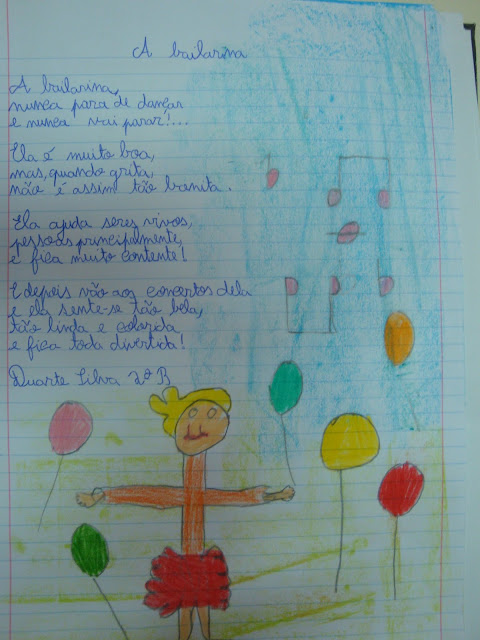 A bailarina
A bailarina,
nunca para de dançar
e nunca vai parar!...
Ela é muito boa,
mas, quando grita,
não é assim tão bonita.
Ela ajuda seres vivos,
pessoas principalmente,
e fica muito contente!
E depois vão aos concertos dela
e ela sente-se tão bela,
tão linda e colorida
e fica toda divertida!
Duarte Silva 2º B